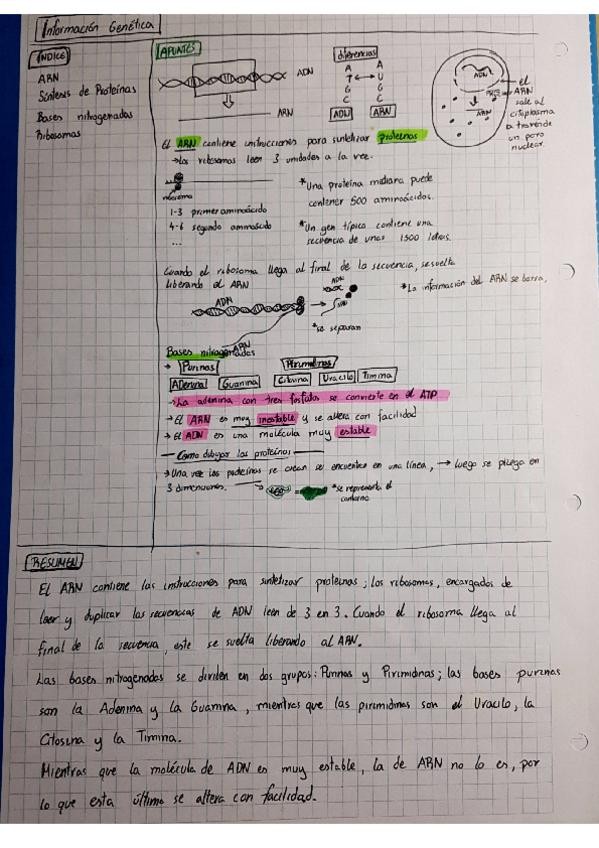 Información Genética
INDICE
ARN
Síntesis de Proteínas
Bases nitrogenadas
Ribosomas
APUNTES
ADN
ARN
diferencias
A A
T U
G G
C C
ADN ARN
ADN
ARN
el
ARN
sale al
citoplasma
a través de
un poro
nuclear.
El ARN contiene instrucciones para sintetizar proteínas
→ Los ribosomas leen 3 unidades a la vez.
ribosoma
1-3 primer aminoácido
4-6 segundo aminoácido
...
*Una proteína mediana puede
contener 500 aminoácidos.
*Un gen típico contiene una
secuencia de unas 1500 letras.
Cuando el ribosoma llega al final de la secuencia, se suelta
liberando al ARN
ADN
ARN
ADN
ARN
*se separan
*La información del ARN se borra,
Bases nitrogenadas
→ Purinas Pirimidinas
Adenina Guanina Citosina Uracilo Timina
→ La adenina con tres fosfatos se convierte en el ATP
→ El ARN es muy inestable y se altera con facilidad
→ El ADN es una molécula muy estable
— Como dibujar las proteínas —
→ Una vez las proteínas se crean se encuentra en una línea, → luego se pliega en
3 dimensiones.
*se representa el
contorno
RESUMEN
El ARN contiene las instrucciones para sintetizar proteínas; los ribosomas, encargados de
leer y duplicar las secuencias de ADN leen de 3 en 3. Cuando el ribosoma llega al
final de la secuencia, este se suelta liberando al ARN.
Las bases nitrogenadas se dividen en dos grupos: Purinas y Pirimidinas; las bases purinas
son la Adenina y la Guanina, mientras que las pirimidinas son el Uracilo, la
Citosina y la Timina.
Mientras que la molécula de ADN es muy estable, la de ARN no lo es, por
lo que esta última se altera con facilidad.